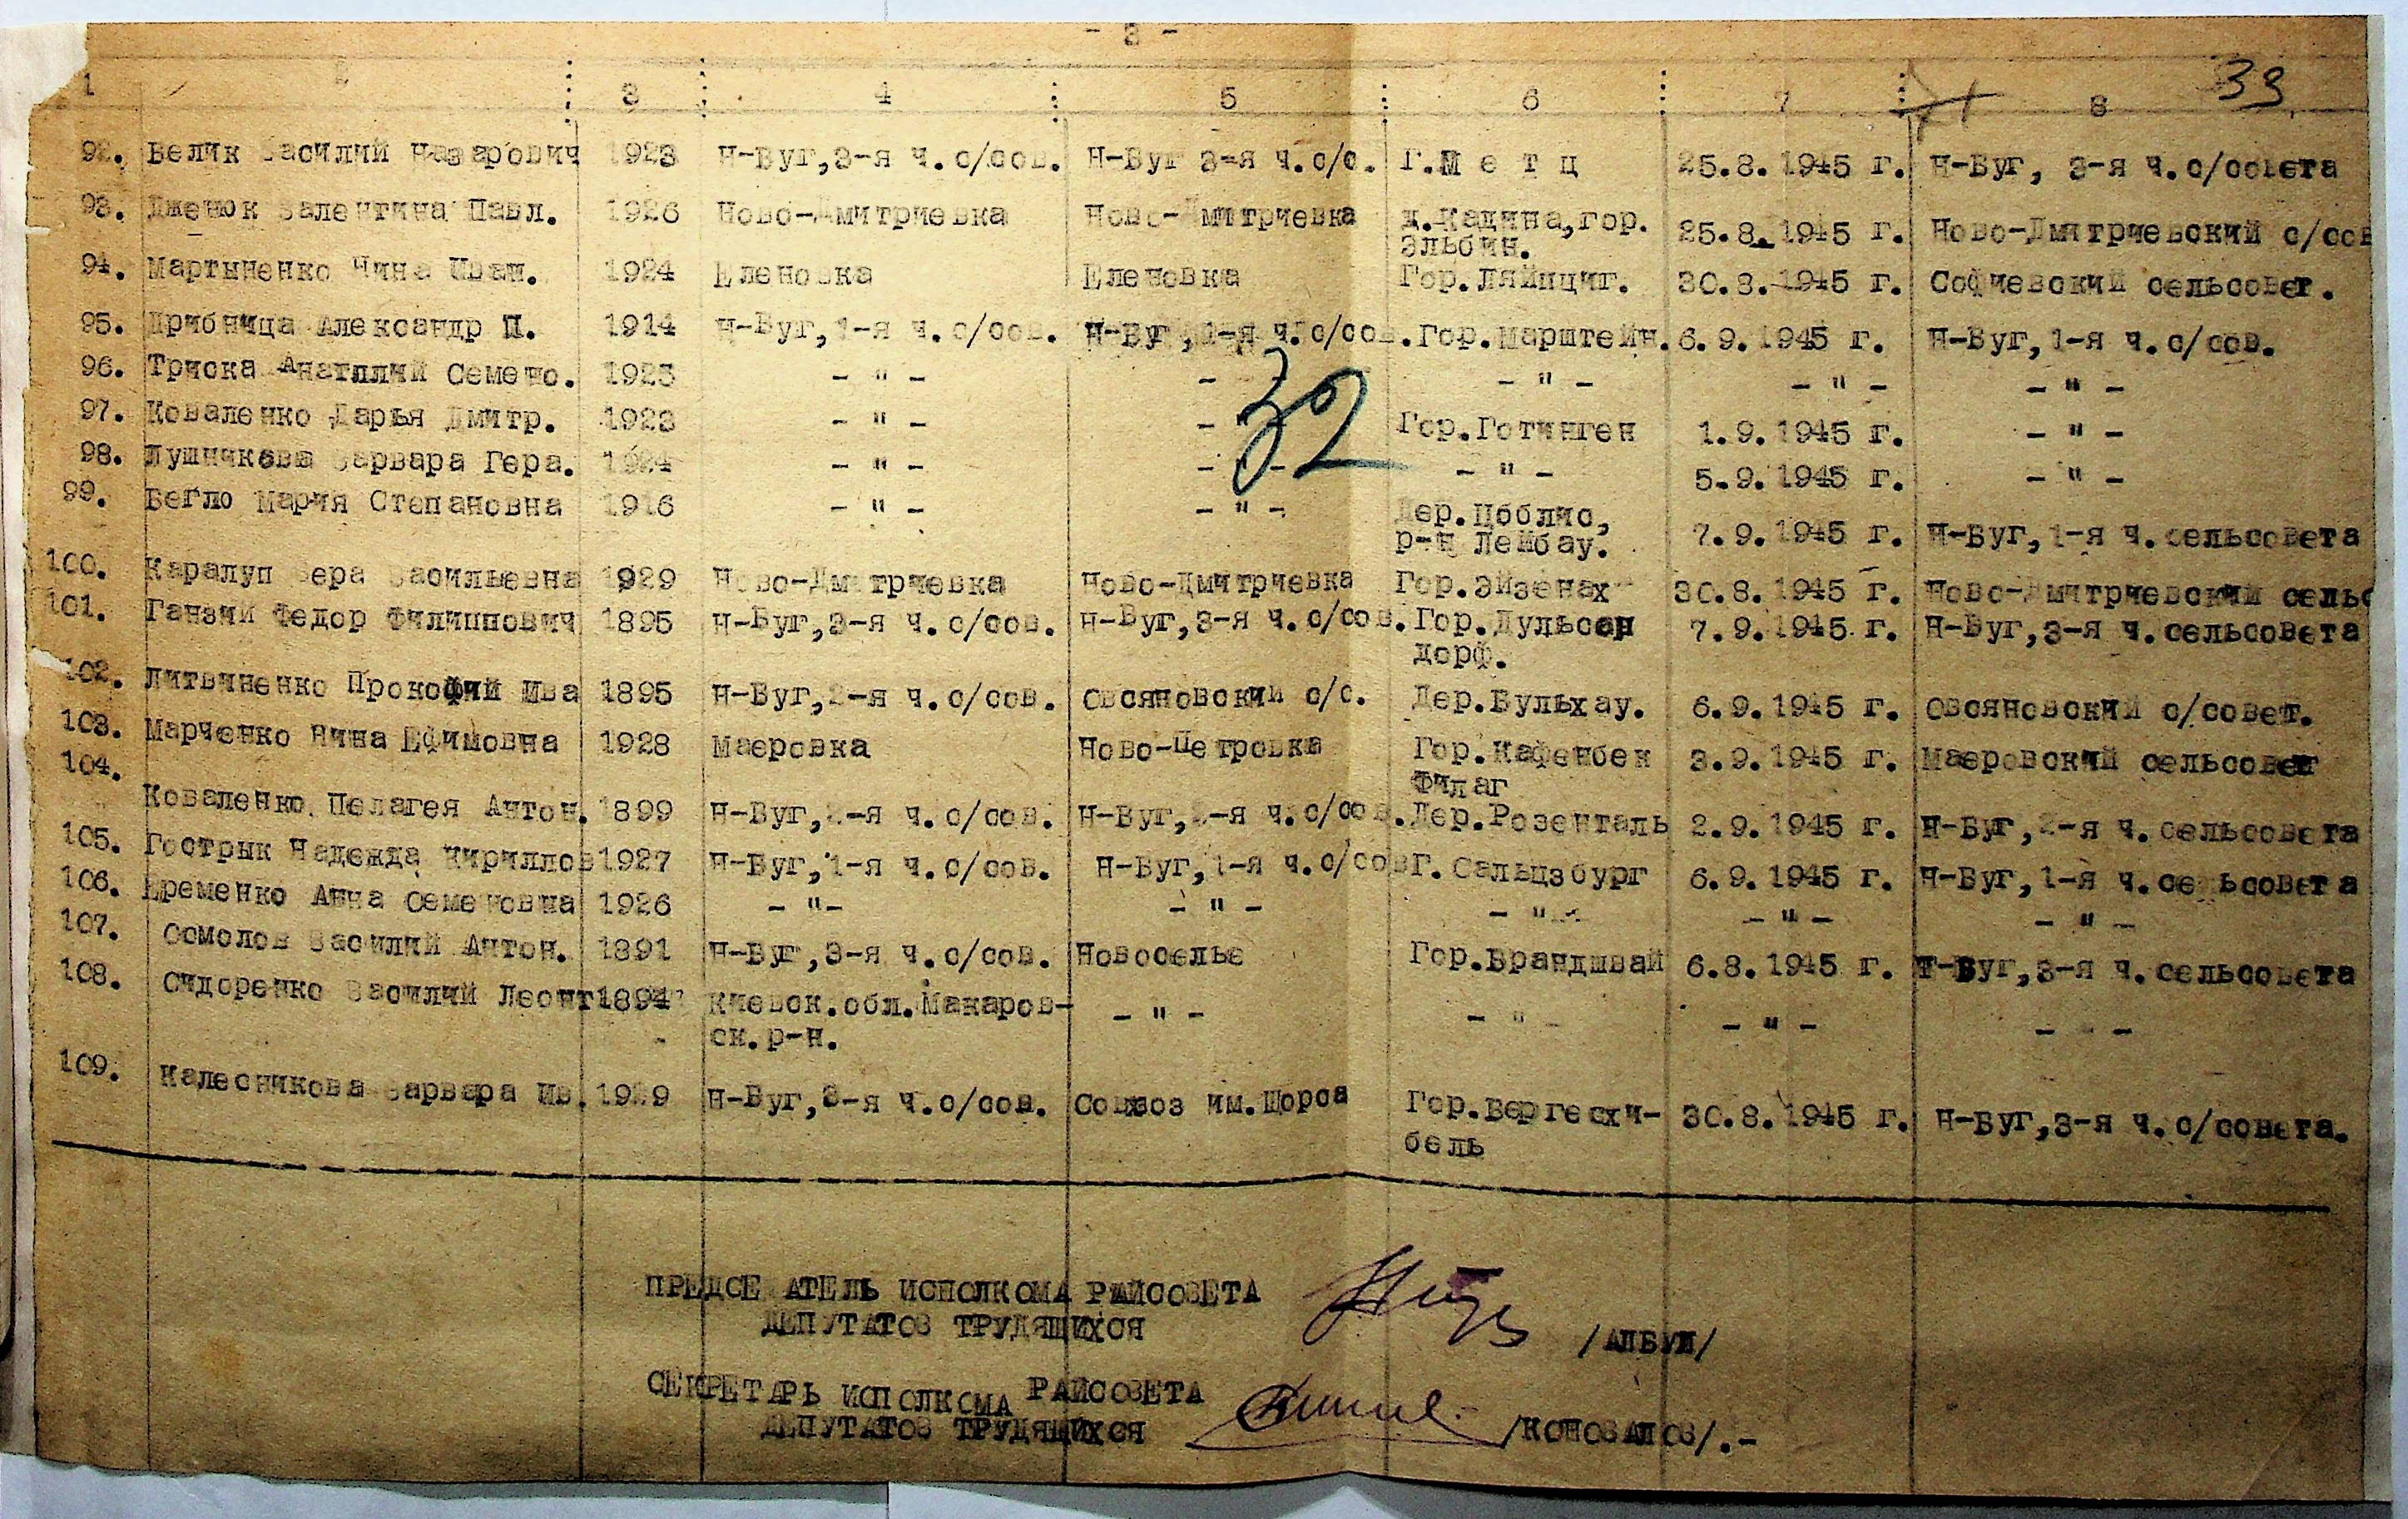 - 3 -
1 3 4 5 6 7 8 33
92. Белик Василий Назарович 1923 Н-Буг,3-я ч.с/сов. Н-Буг 3-я ч.с/с. г.М е т ц 25.8.1945 г. Н-Буг, 3-я ч.с/совета
93. Дженюк Валентина Павл. 1926 Ново-Дмитриевка Ново-Дмитриевка д.Кадина,гор. 25.8.1945 г. Ново-Дмитриевский с/сов
Эльбин.
94. Мартыненко Нина Иван. 1924 Еленовка Еленовка Гор.Ляйпциг. 30.8.1945 г. Софиевский сельсовет.
95. Прибница Александр П. 1914 Н-Буг,1-я ч.с/сов. Н-Буг,1-я ч.с/сов. Гор.Марштейн. 6.9.1945 г. Н-Буг,1-я ч.с/сов.
96. Триска Анатллий Семено. 1923 - " - - " - - " - - " - - " -
97. Коваленко Дарья Дмитр. 1923 - " - - " - Гор.Готинген 1.9.1945 г. - " -
98. Лушникова Варвара Гера. 1924 - " - - " - - " - 5.9.1945 г. - " -
32
99. Бегло Мария Степановна 1916 - " - - " - Дер.Цоблис, 7.9.1945 г. Н-Буг,1-я ч.сельсовета
р-н Лейбау.
100. Каралуп Вера Васильевна 1929 Ново-Дмитриевка Ново-Дмитриевка Гор.Эйзенах 30.8.1945 г. Ново-Дмитриевский сельс
101. Ганзий Федор Филиппович 1895 Н-Буг,3-я ч.с/сов. Н-Буг,3-я ч.с/сов. Гор.Дульсен 7.9.1945 г. Н-Буг,3-я ч.сельсовета
дорф.
102. Литвиненко Прокофий Ива 1895 Н-Буг,2-я ч.с/сов. Овсяновский с/с. Дер.Вульхау. 6.9.1945 г. Овсяновский с/совет.
103. Марченко Нина Ефимовна 1928 Маеровка Ново-Петровка Гор.Кафенбек 3.9.1945 г. Маеровский сельсовет
Филаг
104. Коваленко Пелагея Антон. 1899 Н-Буг,2-я ч.с/сов. Н-Буг,2-я ч.с/сов. Дер.Розенталь 2.9.1945 г. Н-Буг,2-я ч.сельсовета
105. Гострык Надежда Кириллов 1927 Н-Буг,1-я ч.с/сов. Н-Буг,1-я ч.с/сов Г.Сальцзбург 6.9.1945 г. Н-Буг,1-я ч.сельсовета
106. Еременко Анна Семеновна 1926 - "- - " - - " - - " - - " -
107. Сомолов Василий Антон. 1891 Н-Буг,3-я ч.с/сов. Новоселье Гор.Брандшвай 6.8.1945 г. Т-Буг,3-я ч.сельсовета
108. Сидоренко Василий Леонт 1894 Киевск.обл.Макаров- - " - - " - - " - - " -
ск.р-н.
109. Калесникова Варвара Ив. 1929 Н-Буг,3-я ч.с/сов. Совхоз им.Щорса Гор.Вергесхи- 30.8.1945 г. Н-Буг,3-я ч.с/совета.
бель
ПРЕДСЕДАТЕЛЬ ИСПОЛКОМА РАЙСОВЕТА
ДЕПУТАТОВ ТРУДЯЩИХСЯ /АЛБУЛ/
СЕКРЕТАРЬ ИСПОЛКОМА РАЙСОВЕТА
ДЕПУТАТОВ ТРУДЯЩИХСЯ /КОНОВАЛОВ/.-